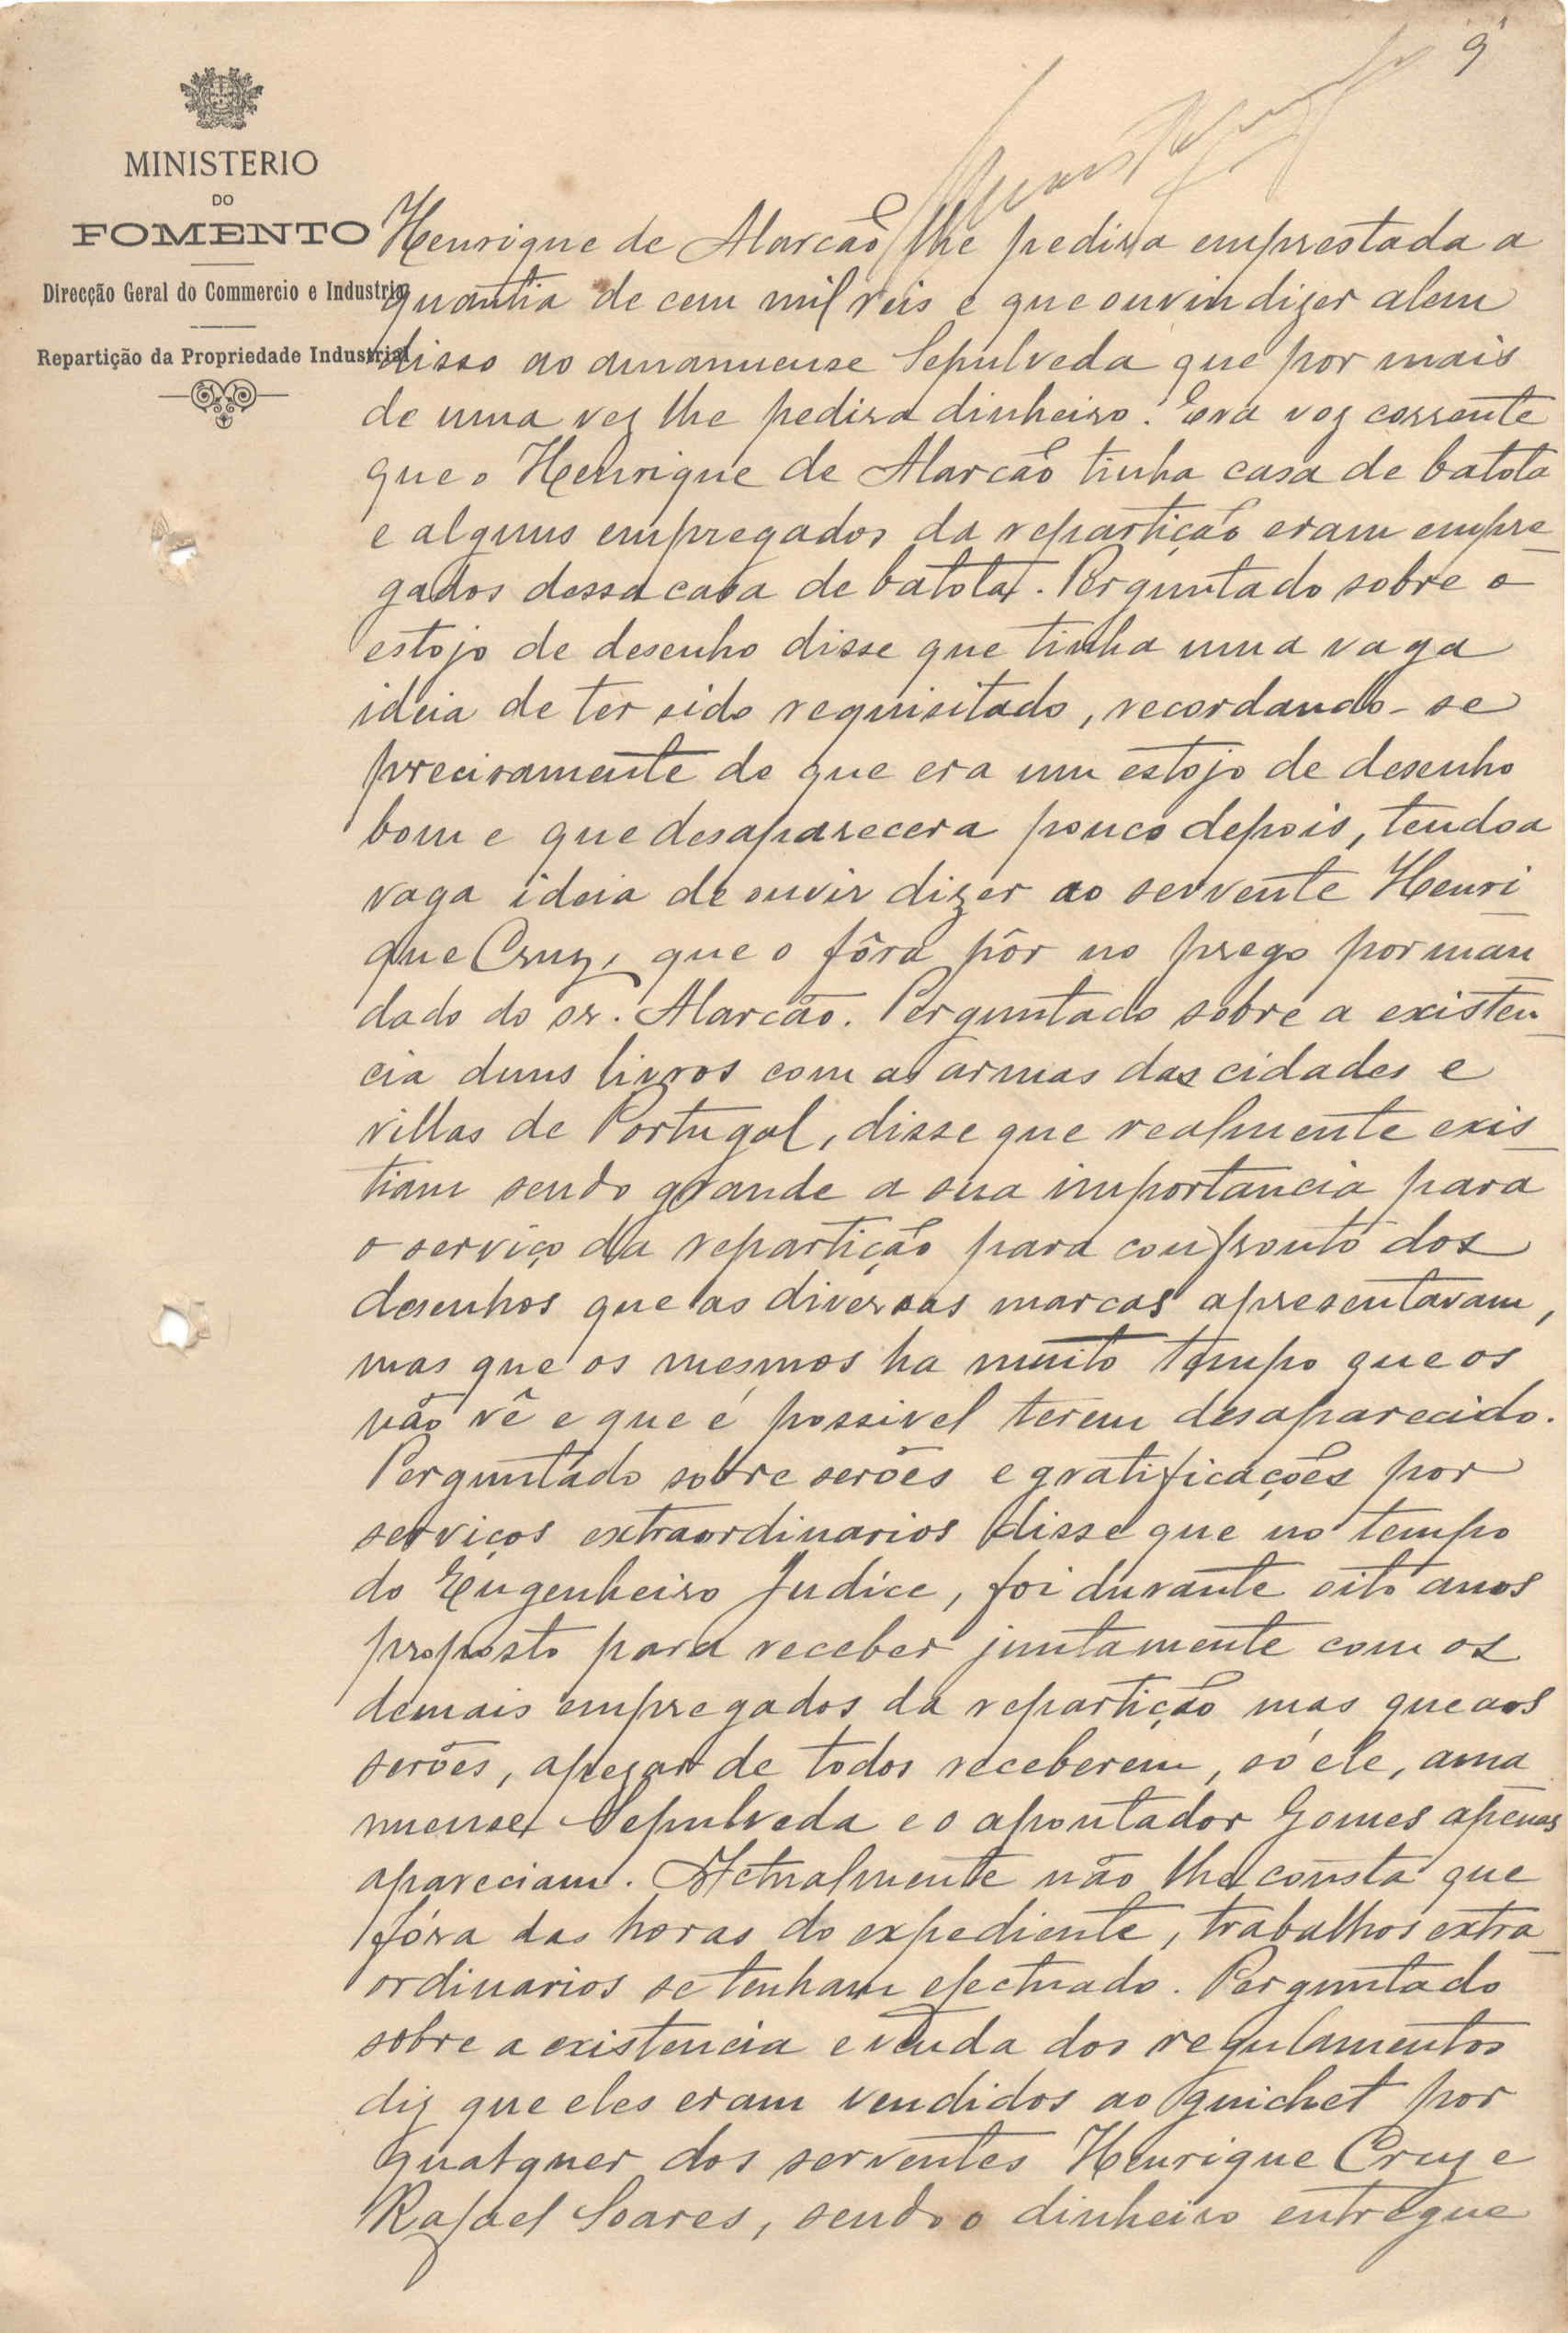 9
MINISTERIO
DO
FOMENTO
Direcção Geral do Commercio e Industria
Repartição da Propriedade Industrial
Henrique de Alarcão lhe pedira emprestada a
quantia de cem mil reis e que ouvin dizer alem
disso ao amanuense Sepulveda que por mais
de uma vez lhe pedira dinheiro. Era voz corrente
que o Henrique de Alarcão tinha casa de batota
e alguns empregados da repartição eram empre
gados dessa casa de batota. Perguntado sobre o
estojo de desenho disse que tinha uma vaga
ideia de ter sido requisitado, recordando-se
precisamente de que era um estojo de desenho
bom e que desaparecera pouco depois, tendo a
vaga ideia de ouvir dizer ao servente Henri
que Cruz, que o fôra pôr no prego por man
dado do sr. Alarcão. Perguntado sobre a existen
cia duns livros com as armas das cidades e
villas de Portugal, disse que realmente exis
tiam sendo grande a sua importancia para
o serviço da repartição para confronto dos
desenhos que as diversas marcas apresentavam,
mas que os mesmos ha muito tempo que os
não vê e que é possivel terem desaparecido.
Perguntado sobre serões e gratificações por
serviços extraordinarios disse que no tempo
do Engenheiro Judice, foi durante oito anos
proposto para receber juntamente com os
demais empregados da repartição mas que aos
serões, apezar de todos receberem, só ele, ama
nuense Sepulveda e o apontador Gomes apenas
apareciam. Actualmente não lhe consta que
fóra das horas do expediente, trabalhos extra
ordinarios se tenham efectuado. Perguntado
sobre a existencia e venda dos regulamentos
diz que eles eram vendidos ao guichet por
qualquer dos serventes Henrique Cruz e
Rafael Soares, sendo o dinheiro entregue